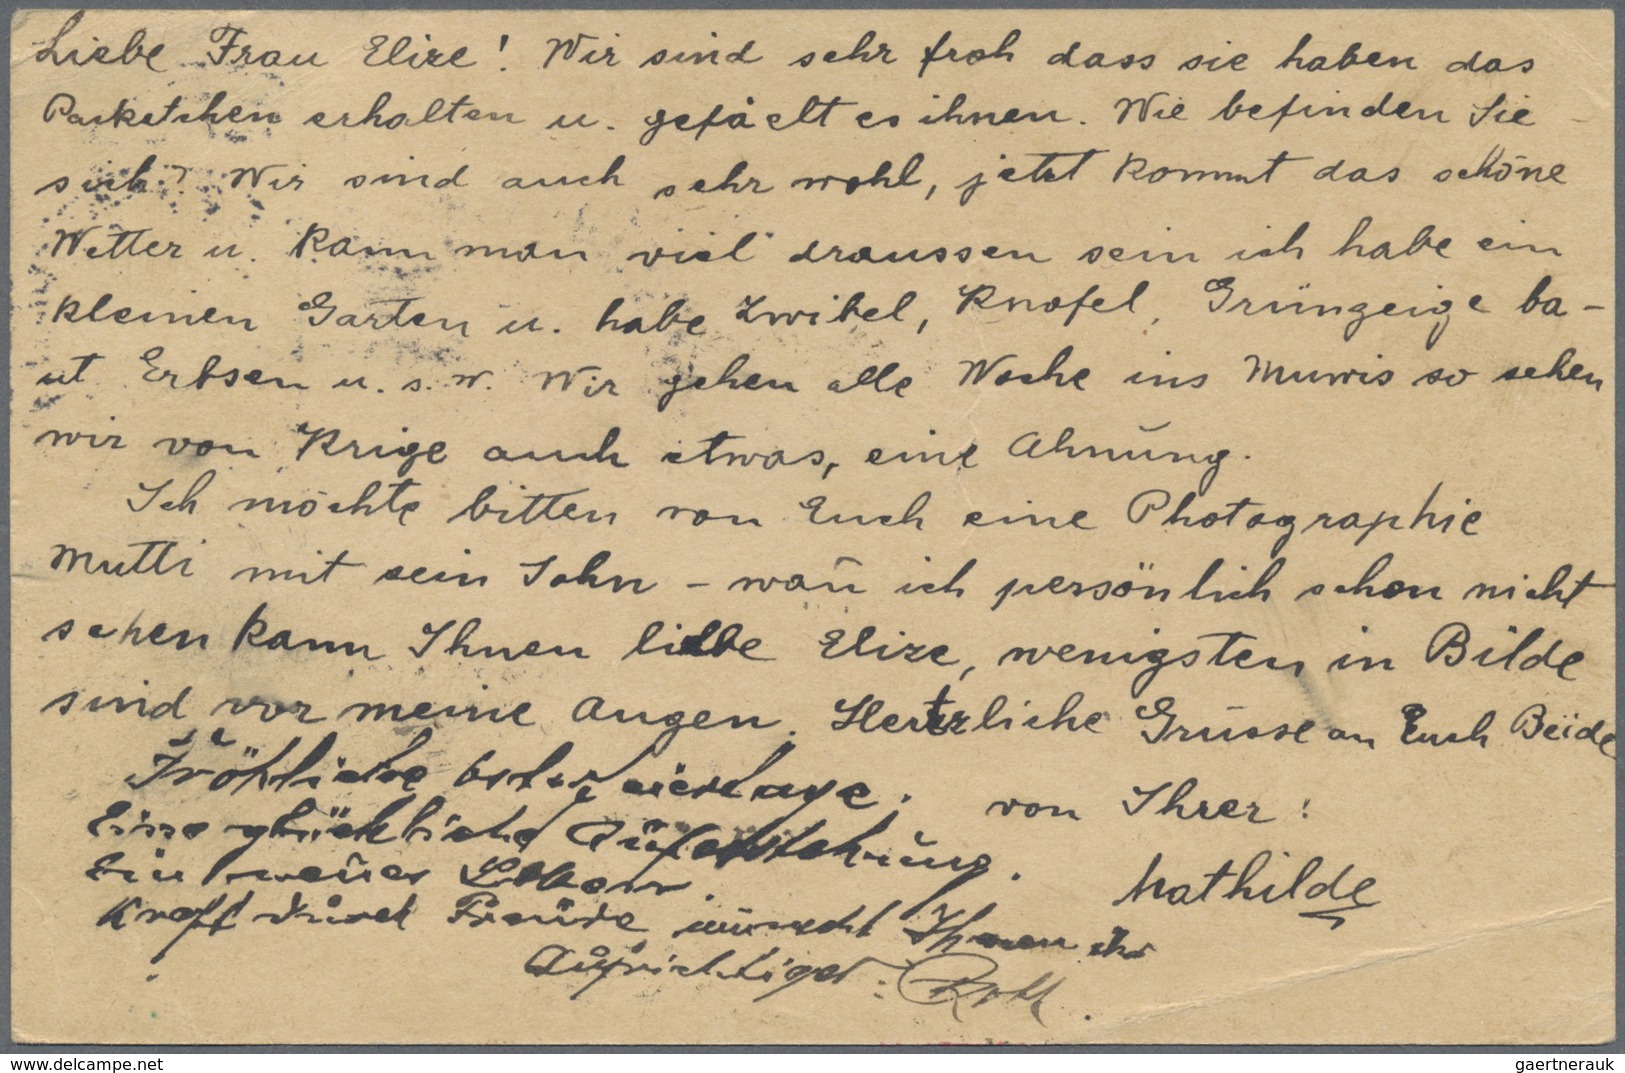 Liebe Frau Elize! Wir sind sehr froh dass sie haben das
Packetchen erhalten u. gefäelt es ihnen. Wie befinden Sie
sich? Wir sind auch sehr wohl, jetzt kommt das schöne
Wetter u. kann man viel draussen sein ich habe ein
kleinen Garten u. habe Zwibel, Knofel, Grünzeige ba-
ut Erbsen u. s. w. Wir gehen alle Woche ins Muwis so sehen
wir von Krige auch etwas, eine Ahnung.
Ich möchte bitten von Euch eine Photographie
Mutti mit sein Sohn - wan̄ ich persönlich schon nicht
sehen kann Ihnen liebe Elize, wenigsten in Bilde
sind vor meine Augen. Herzliche Grüsse an Euch Beide
Fröhliche Osterfeiertage. von Ihrer:
Eine glückliche Auferstehung.
Ein neues Leben. Mathilde
Kraft durch Freude wünscht Ihnen ihr
Aufrichtiger: Roth.
www.delcampe.net
gaertnerauk